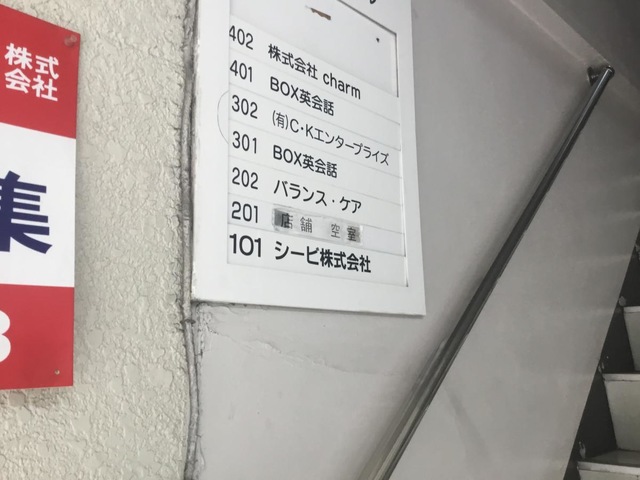 株式
会社
集
402 株式会社 charm
401 BOX英会話
302 (有)C・Kエンタープライズ
301 BOX英会話
202 バランス・ケア
201 店舗 空室
101 シービ株式会社